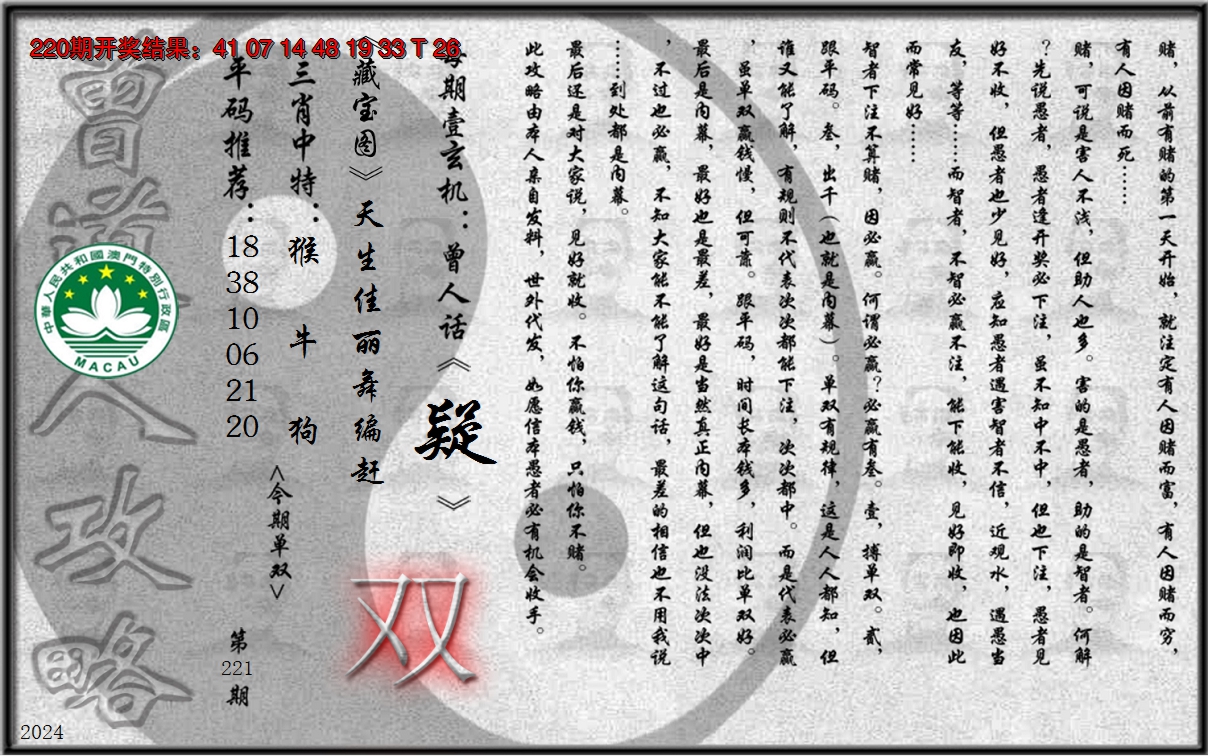 220期开奖结果：41 07 14 48 19 33 T 26
赌，从前有赌的第一天开始，就注定有人因赌而富，有人因赌而穷，
有人因赌而死……
赌，可说是害人不浅，但助人也多。害的是愚者，助的是智者。何解
？先说愚者，愚者逢开奖必下注，虽不知中不中，但也下注，愚者见
好不收，但愚者也少见好，应知愚者遇害智者不信，近观水，遇愚当
友，等等……而智者，不智必赢不注，能下能收，见好即收，也因此
而常见好……
智者下注不算赌，因必赢。何谓必赢？必赢有叁。壹，搏单双。贰，
跟平码。叁，出千（也就是内幕）。单双有规律，这是人人都知，但
谁又能了解，有规则不代表次次都能下注，次次都中。而是代表必赢
，虽单双赢钱慢，但可靠。跟平码，时间长本钱多，利润比单双好。
最后是内幕，最好也是最差，最好是当然真正内幕，但也没法次次中
，不过也必赢，不知大家能不能了解这句话，最差的相信也不用我说
……到处都是内幕。
最后还是对大家说，见好就收。不怕你赢钱，只怕你不赌。
此攻略由本人亲自发料，世外代发，如愿信本愚者必有机会收手。
每期壹玄机：曾人话《疑》
《藏宝图》天生佳丽舞编赶
双
三肖中特：猴 牛 狗
<今期单双>
平码推荐：18 38 10 06 21 20
第221期
曾道人攻略
中華人民共和國澳門特別行政區
MACAU
2024